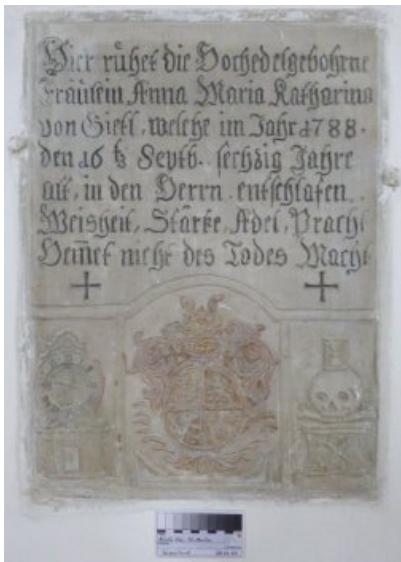 Hier ruhet die Hochedelgebohrne
Fräulein Anna Maria Katharina
von Gietl, welche im Jahr 1788.
den 16 Septb. sechzig Jahre
alt, in den Herrn entschlafen.
Weisheit, Stärke, Adel, Pracht
Hem̃et nicht des Todes Macht